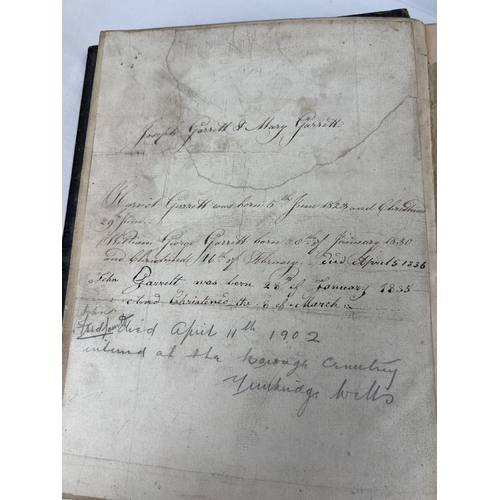 Joseph Garrett & Mary Garrett
Harriet Garrett was born 5th June 1823 and Christened
29th June.
William George Garrett born 20th of January 1830
and Christened 14th of Febuary. Died April 5 1836
John Garrett was born 28th of January 1835
and Christened the 8 of March
John
died April 11th 1902
intered at the borough Cemetrey
Tunbridge Wells